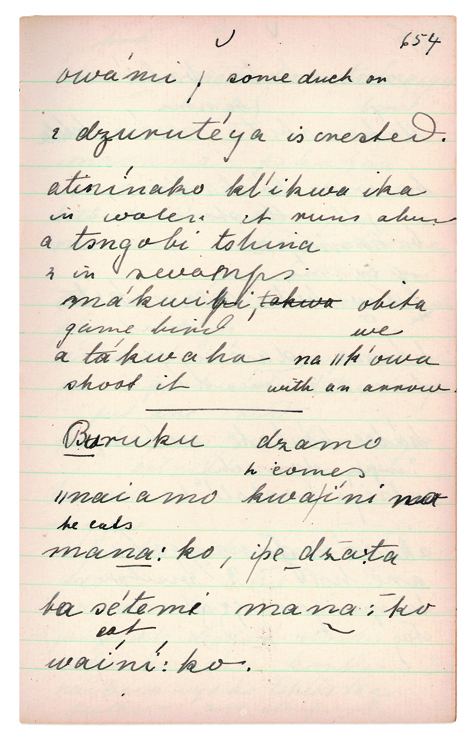 654
owámi, some duck or
2 dzurutéya is crested.
atinínako kl'ikwa ika
in water. it runs about
a tsngobi tshina
2 in swamps
mákwipi, takwa obita
game bird we
a tákwaha na ǁk'owa
shoot it with an arrow.
Buruku dzamo
2 comes
ǁnaiamo kwaíni
he eats
mana: ko, ipe dza:ta
ba sétemi mana: ko
eat
waíní: ko.